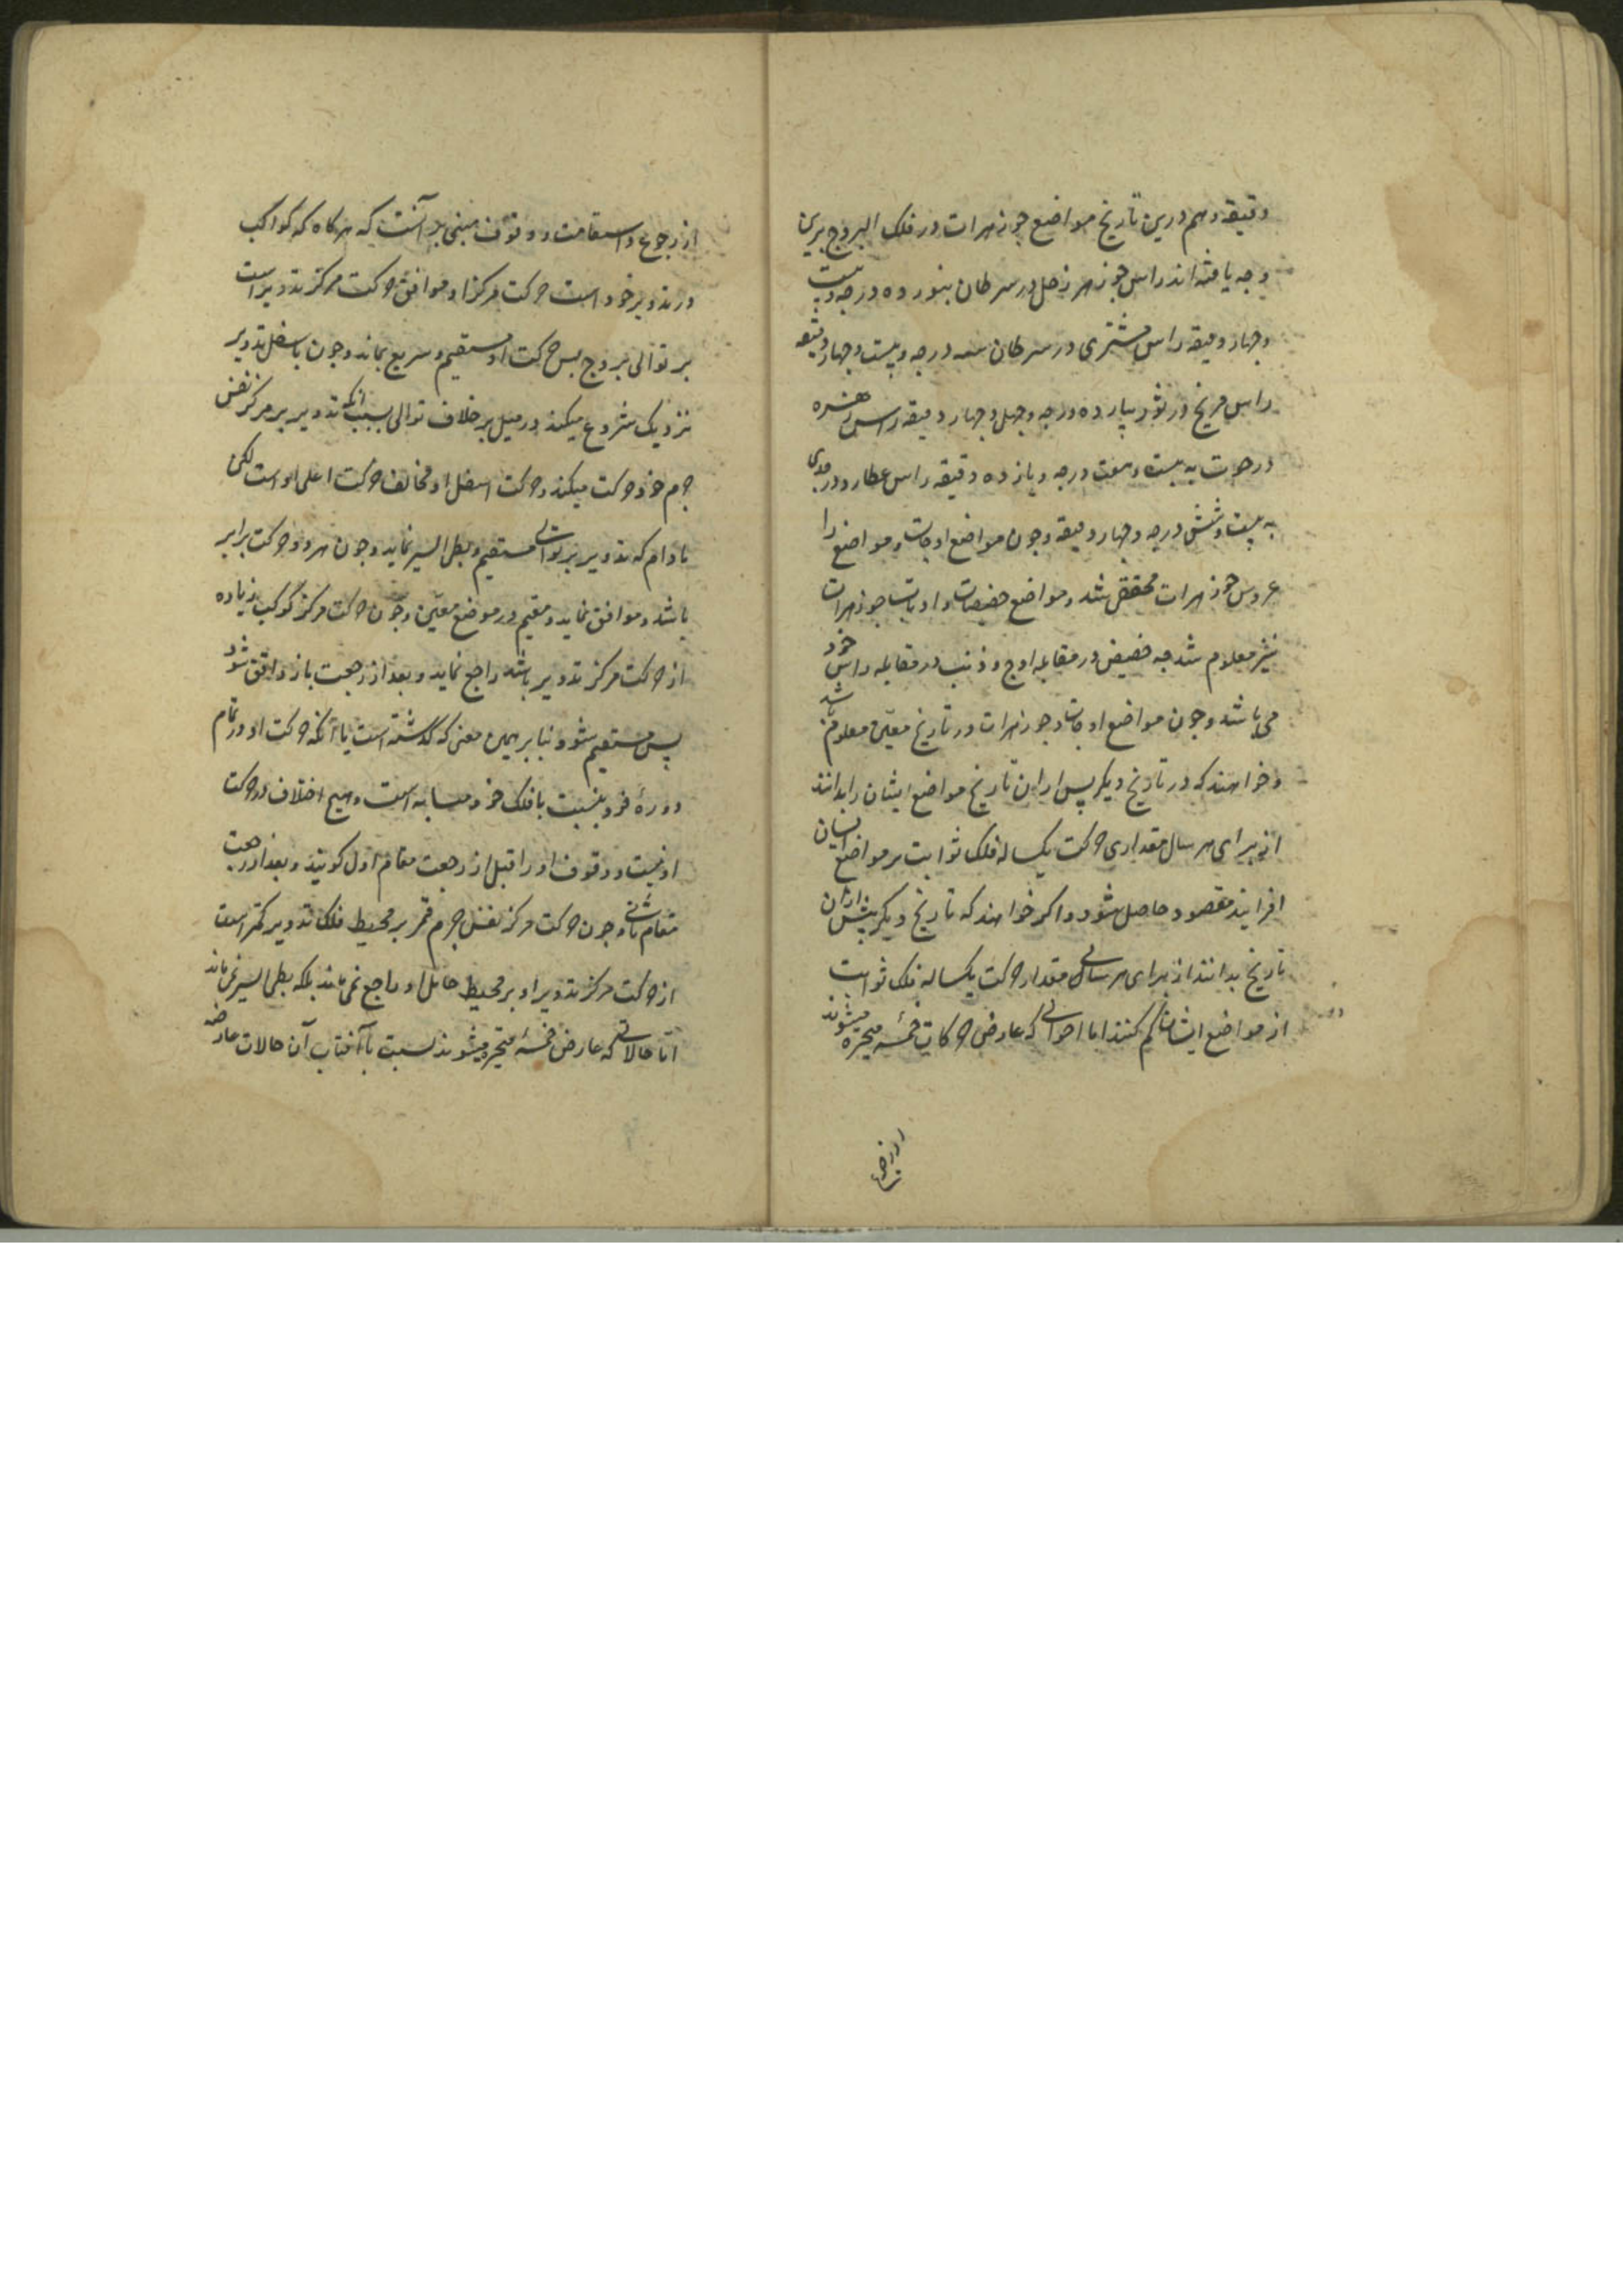 دقیقه وهم درین تاریخ مواضع جوزهرات در فلک البروج برین
وجه یافته اند راس جوزهر زحل در سرطان بنورده درجه و بیست
وجهار دقیقه راس مشتری در سرطان سه درجه و بیست وجهار دقیقه
راس مریخ در ثور بیازده درجه وجهل وجهار دقیقه راس زهره
در حوت به بیست وهفت درجه و یازده دقیقه راس عطارد در جدی
به بیست وشش درجه وجهار دقیقه وجون مواضع اوجات و مواضع را
جوزهرات محقق شد ومواضع حضیضات و جوزهرات
نیز معلوم شد جه حضیض در مقابله اوج و ذنب در مقابله راس خود
می باشد وجون مواضع اوجات وجوزهرات در تاریخ معین معلوم شد
وخواهند که در تاریخ دیکر پس ازان تاریخ مواضع ایشان را بدانند
از برای هر سال مقداری حرکت یکساله فلک ثوابت بر مواضع ایشان
افزایند مقصود حاصل شود واکر خواهند که تاریخ دیکر پیش ازان
تاریخ بدانند از برای هر سالی مقدار حرکت یکساله فلک ثوابت
از مواضع ایشان کم کنند اما احوالی که عارض حرکات خمسه متحیره میشوند
از رجوع و استقامت و وقوف مبنی بر آنست که هرکاه که کواکب
در تدویر خود است حرکت مرکز او موافق حرکت مرکز تدویر است
بر توالی بروج پس حرکت او مستقیم و سریع نماید وجون باسفل تدویر
نزدیک شروع میکند در میل بر خلاف توالی بسبب آنکه تدویر بر مرکز نفس
جرم خود حرکت میکند وحرکت اسفل او مخالف حرکت اعلی او است لکن
مادام که تدویر بر توالی مستقیم و بطی السیر نماید وجون هر دو حرکت برابر
باشد و موافق نماید و مقیم در موضع معین وجون حرکت مرکز کوکب زیاده
از حرکت مرکز تدویر باشد راجع نماید و بعد از رجعت باز واقف شود
پس مستقیم شود و بنا بر همین معنی که گذشته است با آنکه حرکت او در تمام
دوره خود بنسبت با فلک خود متشابه است وهیچ اختلاف در حرکت
او نیست و وقوف او را قبل از رجعت مقام اول کویند و بعد از رجعت
مقام ثانی وجون حرکت مرکز نفس جرم قمر بر محیط فلک تدویر کمتر است
از حرکت مرکز تدویر او بر محیط حامل او راجع نمی نماید بلکه بطی السیر می نماید
اما حالاتی که عارض خمسه متحیره میشوند نسبت با آفتاب آن حالات عارضه